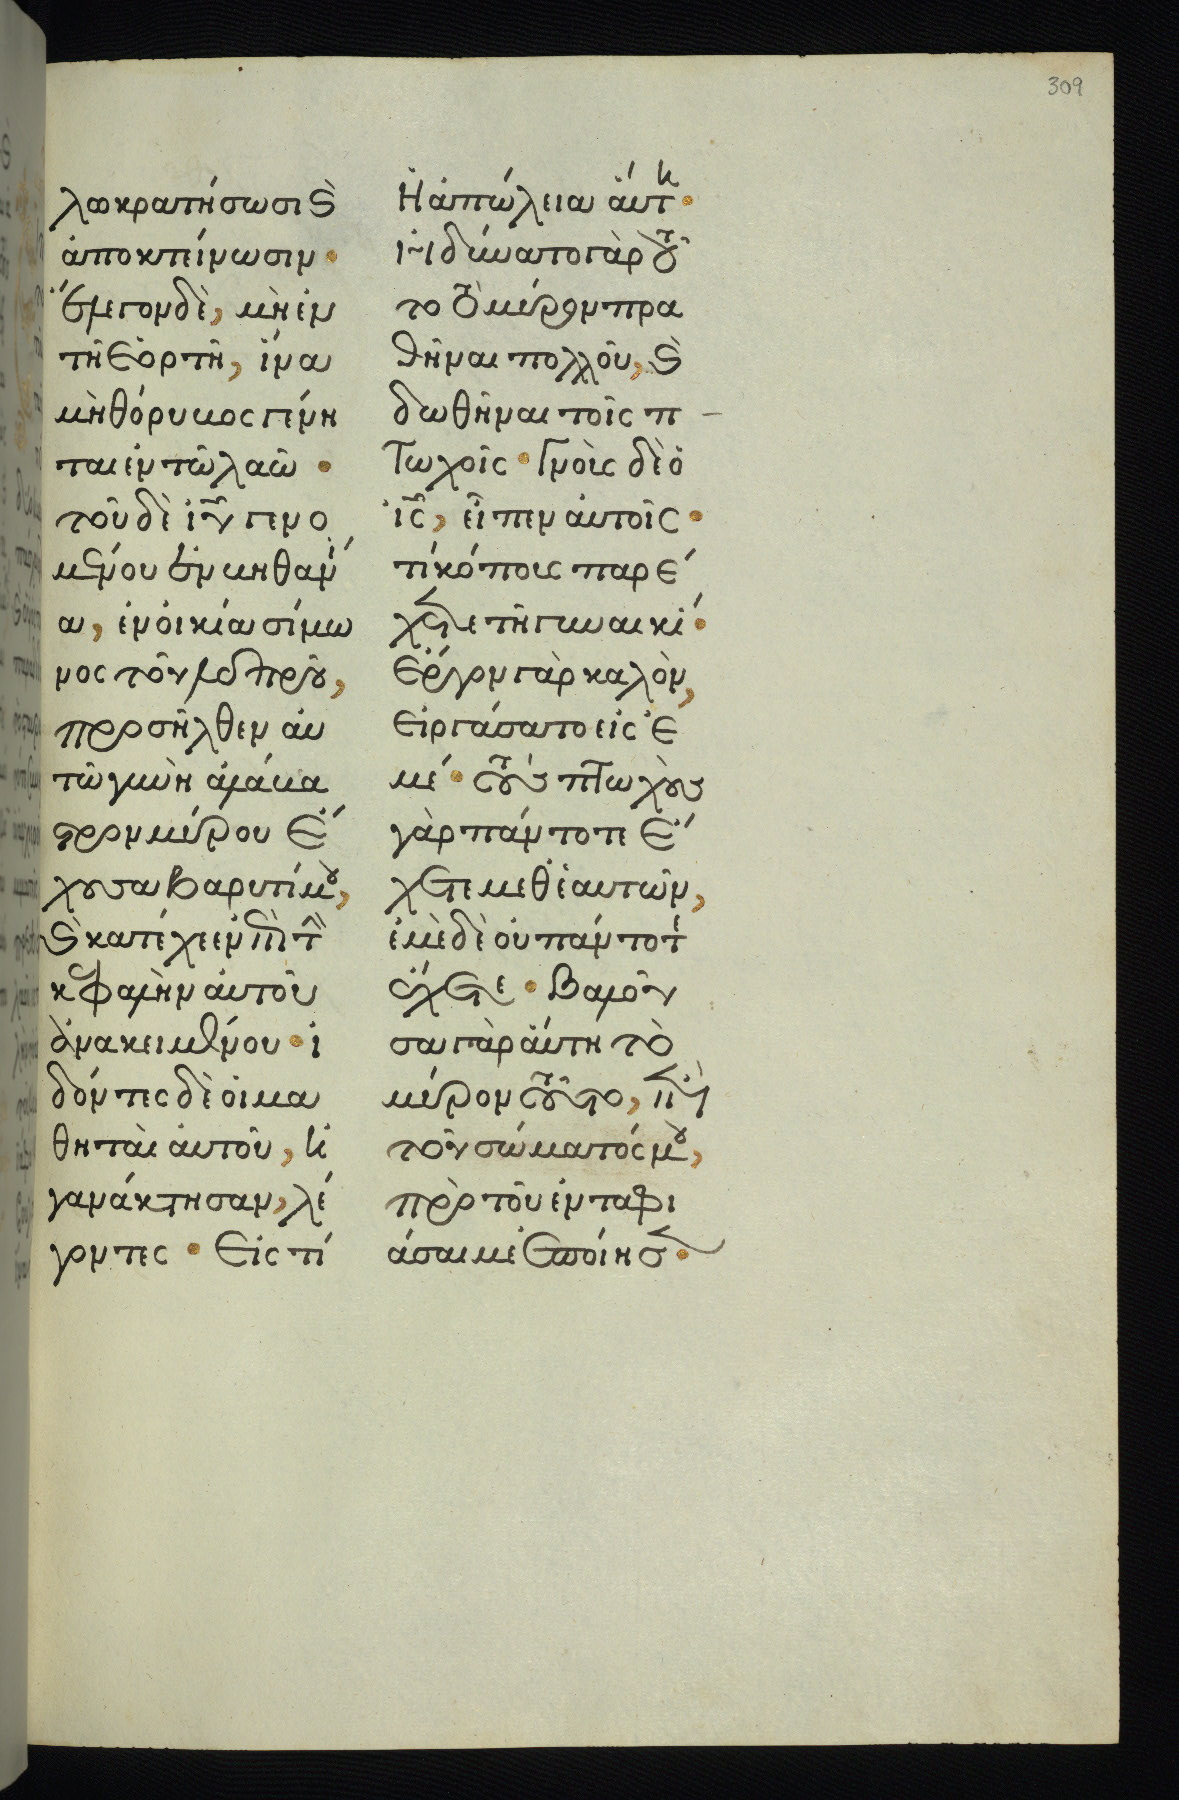 309
λω κρατήσωσι ϗ
ἀποκτείνωσιν·
ἔλεγον δὲ, μὴ ἐν
τῆ ἑορτῆ, ἵνα
μὴ θόρυβος γένη
ται ἐν τῶ λαῶ·
τοῦ δὲ ἰῦ γενο
μένου ἐν βηθανί
α, ἐν οἰκία σίμω
νος τοῦ λεπροῦ,
προσῆλθεν αὐ
τῶ γυνὴ ἀλάβα
στρον μύρου ἔ
χουσα βαρυτίμου,
ϗ κατέχεεν ἐπὶ τὴν
κεφαλὴν αὐτοῦ
ἀνακειμένου· ἰ
δόντες δὲ οἱ μα
θηταὶ αὐτοῦ, ἠ
γανάκτησαν, λέ
γοντες· εἰς τί
ἡ ἀπώλεια αὕτη·
ἠδύνατο γὰρ τοῦ
το τὸ μύρον πρα
θῆναι πολλοῦ, ϗ
δωθῆναι τοῖς π
τωχοῖς· γνοὺς δὲ ὁ
ἰς, εἶπεν αὐτοῖς·
τί κόπους παρέ
χετε τῆ γυναικί·
ἔργον γὰρ καλὸν,
εἰργάσατο εἰς ἐ
μέ· τοὺς πτωχοὺς
γὰρ πάντοτε ἔ
χετε μεθ' ἑαυτῶν,
ἐμὲ δὲ οὐ πάντοτε
ἔχετε· βαλοῦ
σα γὰρ αὕτη τὸ
μύρον τοῦτο, ἐπὶ
τοῦ σώματός μου,
πρὸς τὸ ἐνταφι
άσαι με ἐποίησεν·